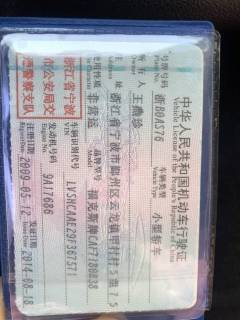 中华人民共和国机动车行驶证
Vehicle License of the People's Republic of China
号牌号码 浙B0AS76 车辆类型 小型轿车
Plate No. Vehicle Type
所有人
Owner
住址 浙江省宁波市鄞州区云龙镇
Address
使用性质 非营运 品牌型号 福克斯牌CAF7180B38
Use Character Model
浙江省宁波市公安局交通警察支队
车辆识别代号 LVSHCAAE29F367571
VIN
发动机号码 9A17686
Engine No.
注册日期 2009-05-12 发证日期 2014-08-18
Register Date Issue Date